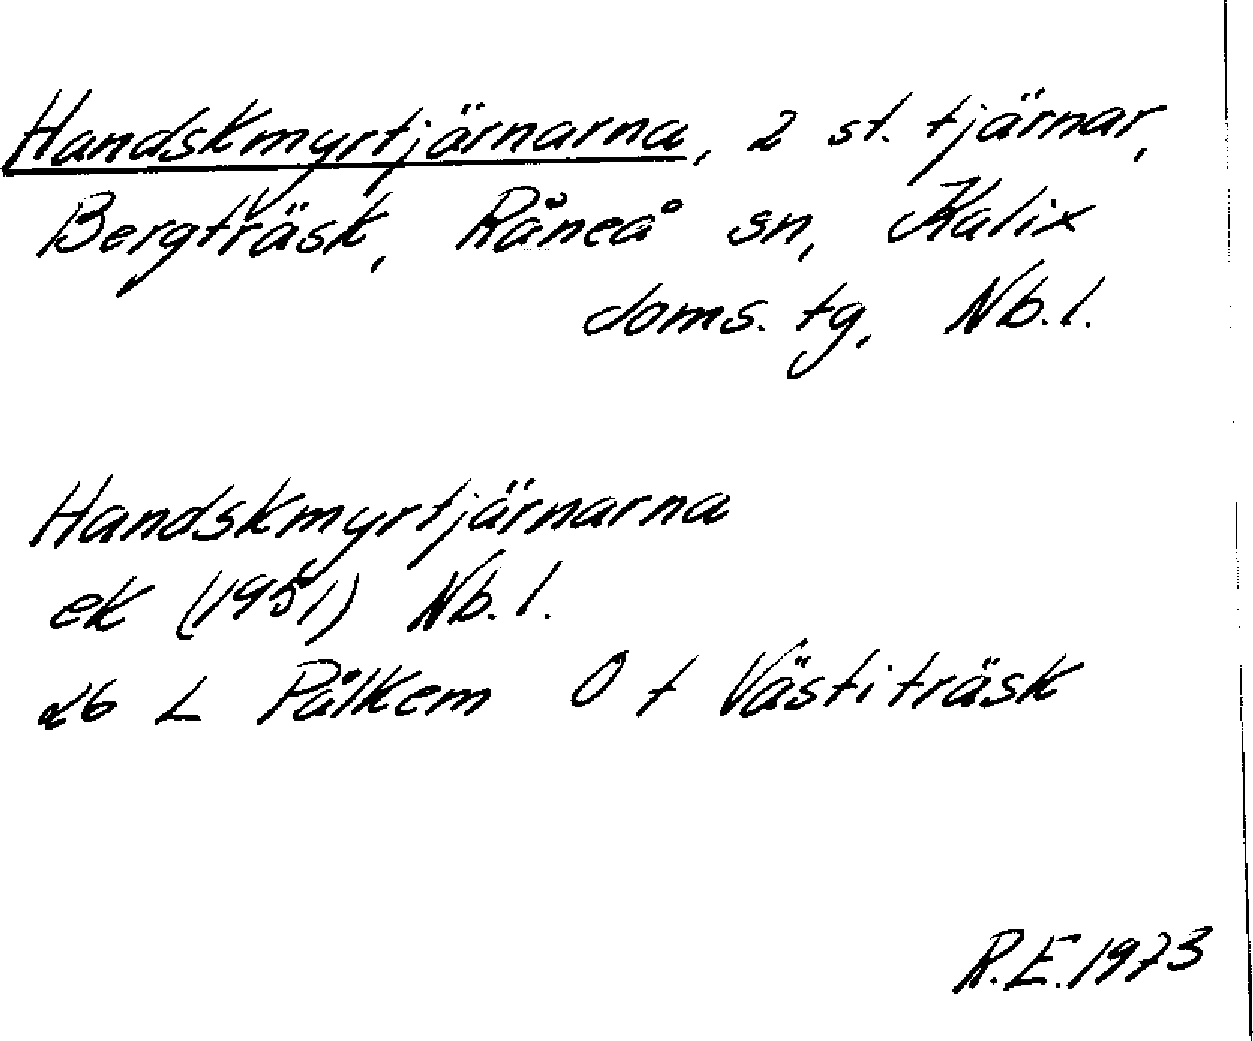 Handskmyrtjärnarna, 2 st. tjärnar,
Bergträsk, Råneå sn, Kalix
doms. tg, Nb. l.
Handskmyrtjärnarna
ek (1951) Nb. l.
26 L Pålkem O t Västiträsk
R.E. 1973